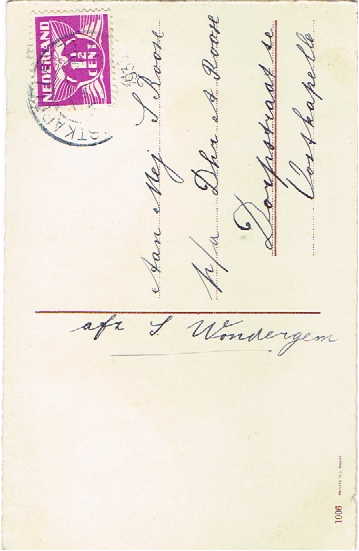 NEDERLAND
1½
CENT
Aan Mej S Roose
p/a Dhr A Roose
Dorpstraat
Oostkapelle
afz S Wondergem
1006